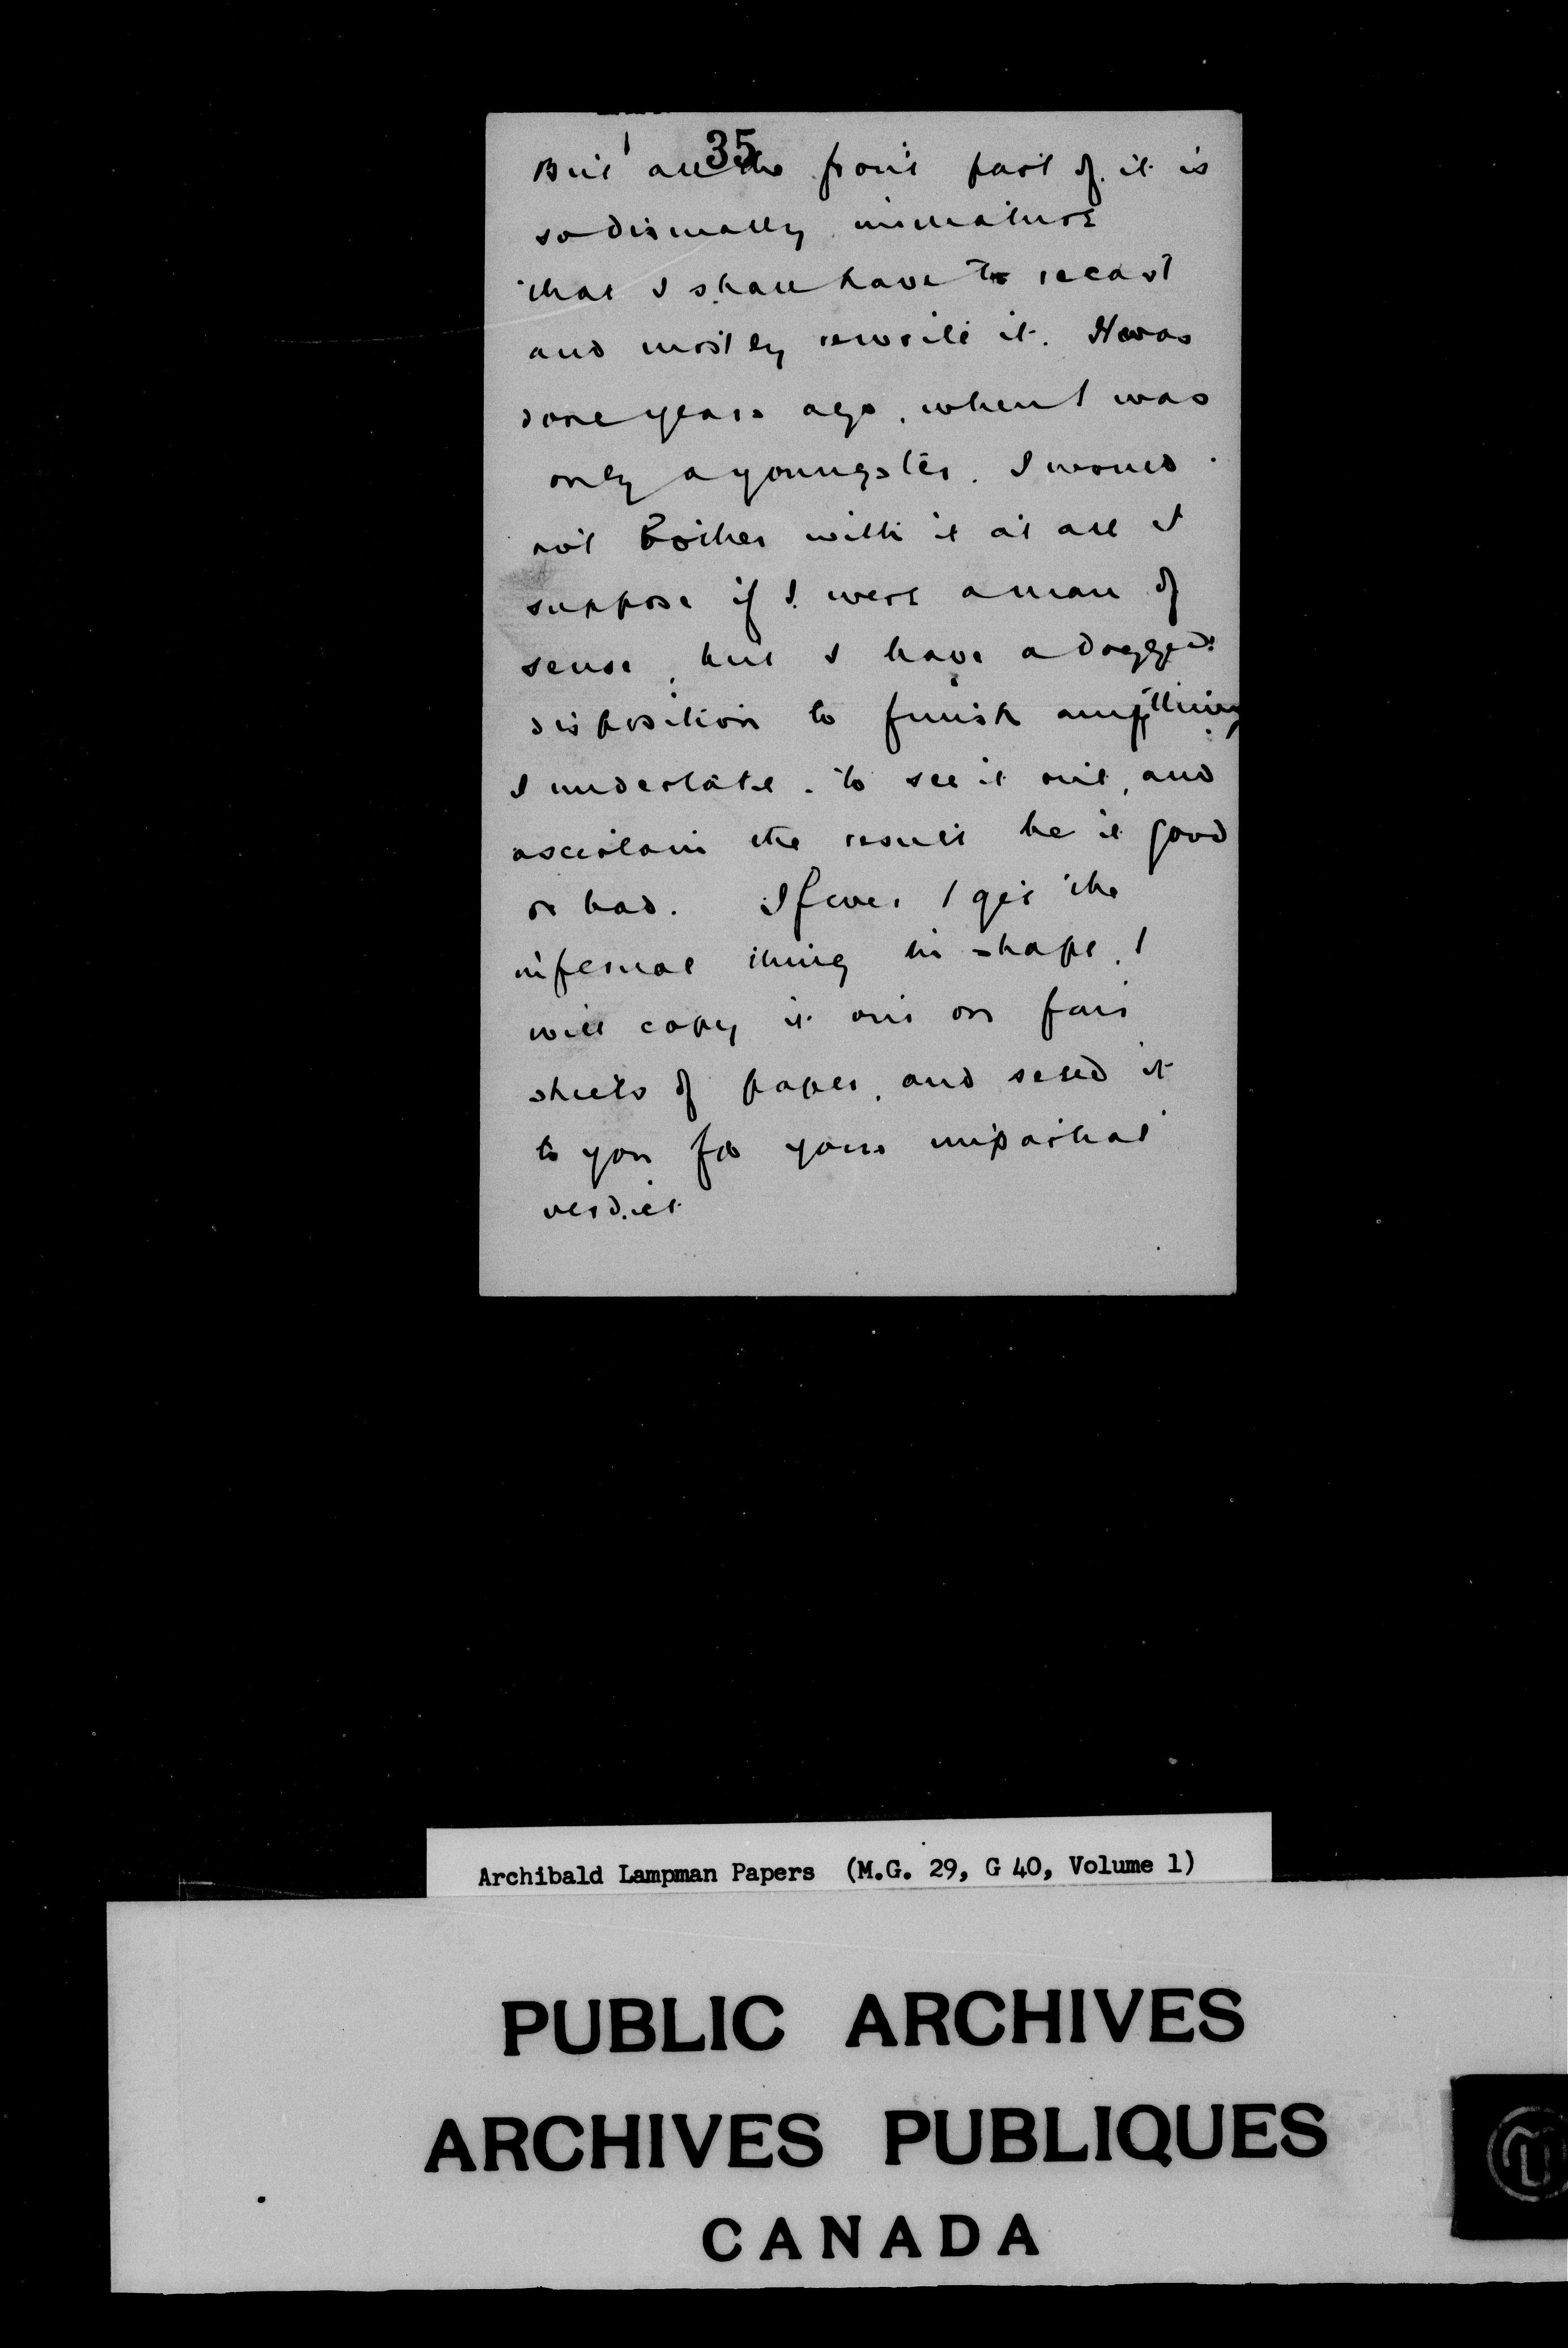 35
But all the front part of it is
so dismally immature
that I shall have to recast
and mostly rewrite it. It was
done years ago, when I was
only a youngster. I would
not bother with it at all I
suppose if I were a man of
sense, but I have a dogged
disposition to finish anything
I undertake, to see it out, and
ascertain the result be it good
or bad. If ever I get the
infernal thing in shape, I
will copy it out on fair
sheets of paper, and send it
to you for your impartial
verdict
Archibald Lampman Papers (M.G. 29, G 40, Volume 1)
PUBLIC ARCHIVES
ARCHIVES PUBLIQUES
CANADA